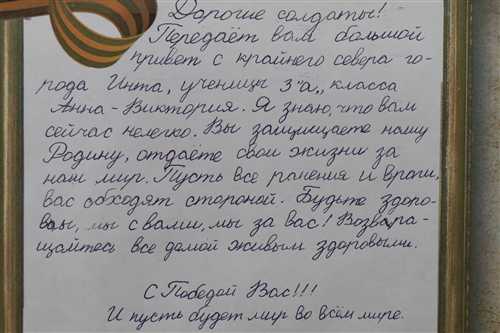 Дорогие солдаты!
Передаёт вам большой
привет с крайнего севера го-
рода Инта, ученицы 3"а„ класса
Анна-Виктория. Я знаю, что вам
сейчас нелегко. Вы защищаете нашу
Родину, отдаёте свои жизни за
наш мир. Пусть все ранения и враги,
вас обходят стороной. Будьте здоро-
вы, мы с вами, мы за вас! Возвра-
щайтесь все домой живым здоровыми.
С Победой Вас!!!
И пусть будет мир во всём мире.